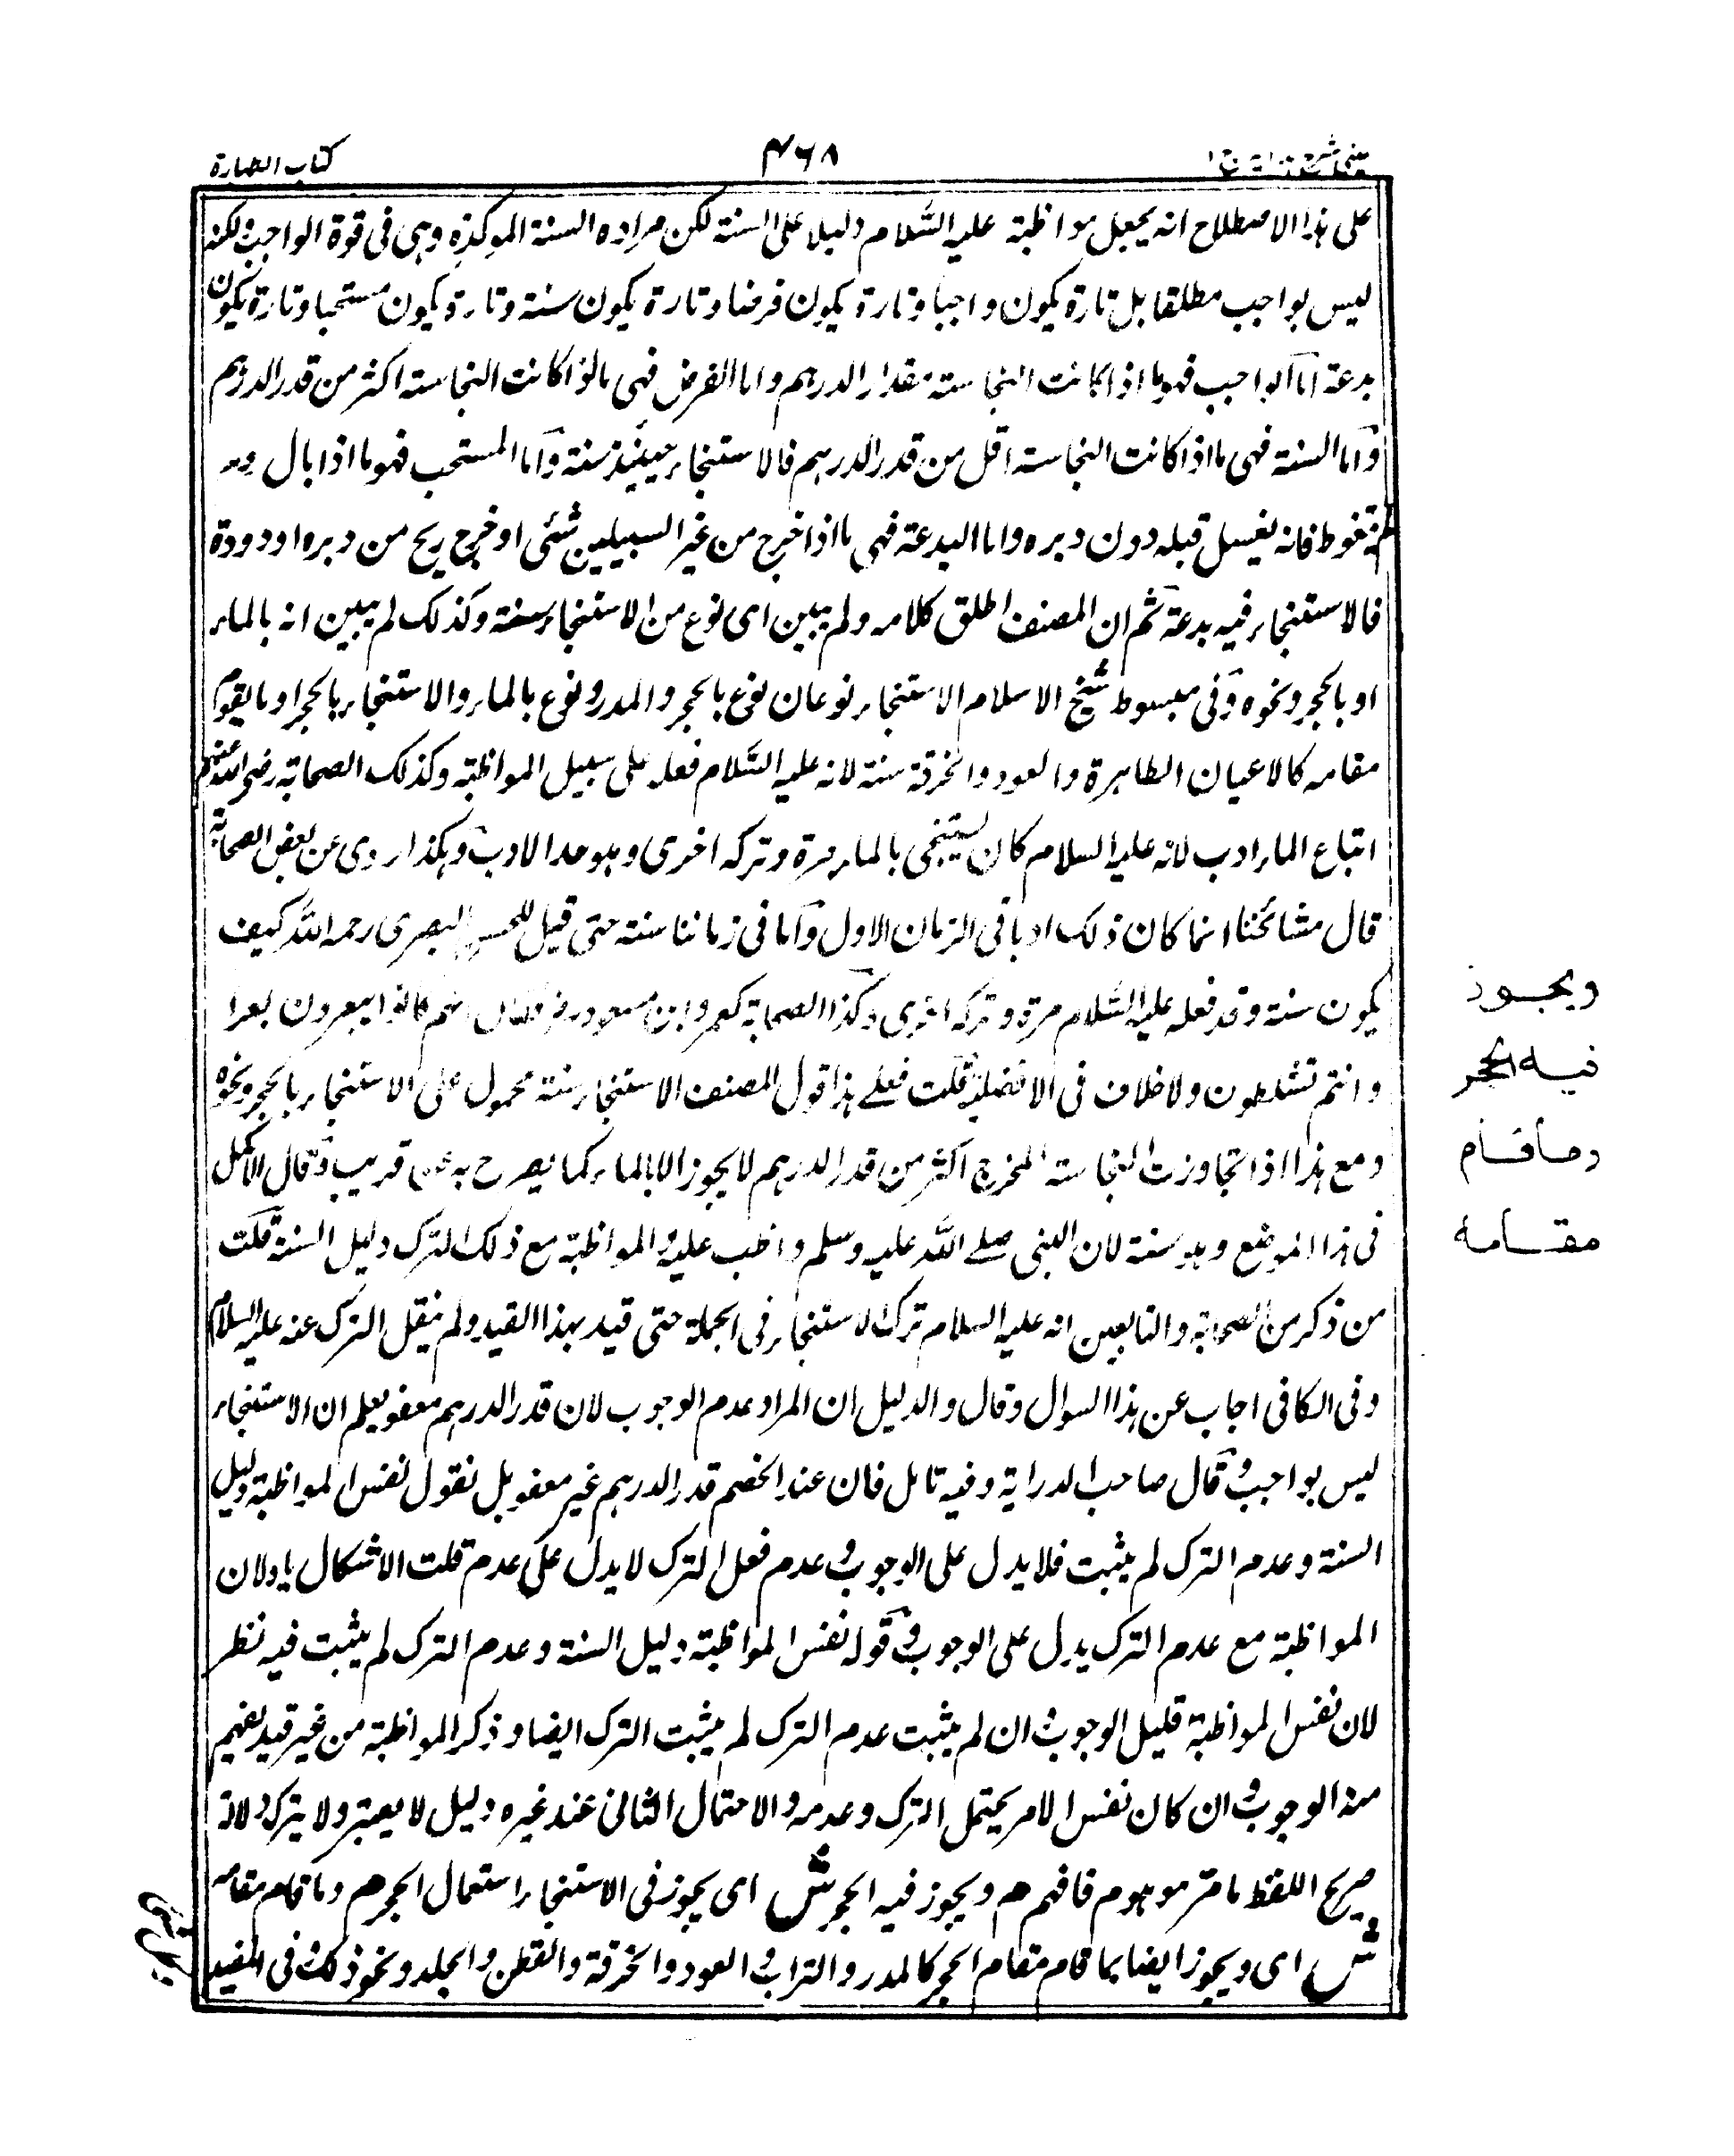 عینی شرح ہدایہ ج ۱
۴۶۸
کتاب الطہارۃ
علی ہذا الاصطلاح انہ یجعل مواظبۃ علیہ السَّلام دلیلا علی السنۃ لکن مرادہ السنۃ الموکدۃ وہی فی قوۃ الواجب ولکنہ
لیس بواجب مطلقا بل تارۃ یکون واجبا وتارۃ یکون فرضا وتارۃ یکون سنۃ وتارۃ یکون مستحبا وتارۃ یکون
بدعۃ اما الواجب فہو ما اذا کانت النجاستہ مقدار الدرہم واما الفرض فہی ما اذا کانت النجاستہ اکثر من قدر الدرہم
واما السنۃ فہی ما اذا کانت النجاستہ اقل من قدر الدرہم فالاستنجاء حینئذ سنۃ واما المستحب فہو ما اذا بال ولم
یتغوط فانہ یغسل قبلہ دون دبرہ واما البدعۃ فہی ما اذا خرج من غیر السبیلین شئی او خرج ریح من دبرہ او دودۃ
فالاستنجاء فیہ بدعۃ ثم ان المصنف اطلق کلامہ ولم یبین ای نوع من الاستنجاء سنۃ وکذلک لم یبین انہ بالماء
او بالحجر ونحوہ وفی مبسوط شیخ الاسلام الاستنجاء نوعان نوع بالحجر والمدر ونوع بالماء والاستنجاء بالحجر او ما یقوم
مقامہ کالاعیان الطاہرۃ والعود والخرقۃ سنۃ لانہ علیہ السَّلام فعلہ علی سبیل المواظبۃ وکذلک الصحابۃ رضی اللہ عنہم
اتباع الماء ادب لانہ علیہ السلام کان یستنجی بالماء مرۃ وترکہ اخری وہو حد الادب وہکذا روی عن بعض الصحابۃ
قال مشائخنا انما کان ذلک ادبا فی الزمان الاول واما فی زماننا سنۃ حتی قیل للحسن البصری رحمہ اللّٰہ کیف
یکون سنۃ وقد فعلہ علیہ السَّلام مرۃ وترکہ اخری وکذا الصحابۃ کعمر وابن مسعود فقال انہم کانوا یبعرون بعرا
وانتم تثلطون ولا خلاف فی الافضلیۃ قلت فعلے ہذا قول المصنف الاستنجاء سنۃ محمول علی الاستنجاء بالحجر ونحوہ
ومع ہذا اذا تجاوزت النجاستہ المخرج اکثر من قدر الدرہم لا یجوز الا بالماء کما یصرح بہ عن قریب وقال الاکمل
فی ہذا الموضع وہو سنۃ لان النبی صلے اللّٰہ علیہ وسلم واظب علیہ والمواظبۃ مع ذلک الترک دلیل السنۃ قلت
من ذکر من الصحابۃ والتابعین انہ علیہ السلام ترک الاستنجاء فی الجملۃ حتی قید بہذا القید ولم ینقل الترک عنہ علیہ السلام
وفی الکافی اجاب عن ہذا السوال وقال والدلیل ان المراد عدم الوجوب لان قدر الدرہم معفو یعلم ان الاستنجاء
لیس بواجب وقال صاحب الدرایۃ وفیہ تامل فان عند الخصم قدر الدرہم غیر معفو بل نقول نفس المواظبۃ دلیل
السنۃ وعدم الترک لم یثبت فلا یدل علی الوجوب وعدم فعل الترک لا یدل علی عدم قلت الاشکال باد لان
المواظبۃ مع عدم الترک یدل علی الوجوب وقولہ نفس المواظبۃ دلیل السنۃ وعدم الترک لم یثبت فیہ نظر
لان نفس المواظبۃ قلیل الوجوب وان لم یثبت عدم الترک لم یثبت الترک ایضا وذکر المواظبۃ من غیر قید یفہم
منہ الوجوب وان کان نفس الامر یحتمل الترک وعدمہ والاحتمال الثانی عند غیرہ دلیل لا یعتبر ولا یترک دلالۃ
صریح اللفظ بامر موہوم فافہم م ویجوز فیہ الحجر ش ای یجوز فی الاستنجاء استعمال الحجر م وما قام مقامہ
ش ای ویجوز ایضا بما قام مقام الحجر کالمدر والتراب والعود والخرقۃ والقطن والجلد ونحو ذلک وفی المفید
ویجوز
فیہ الحجر
وما قام
مقامہ